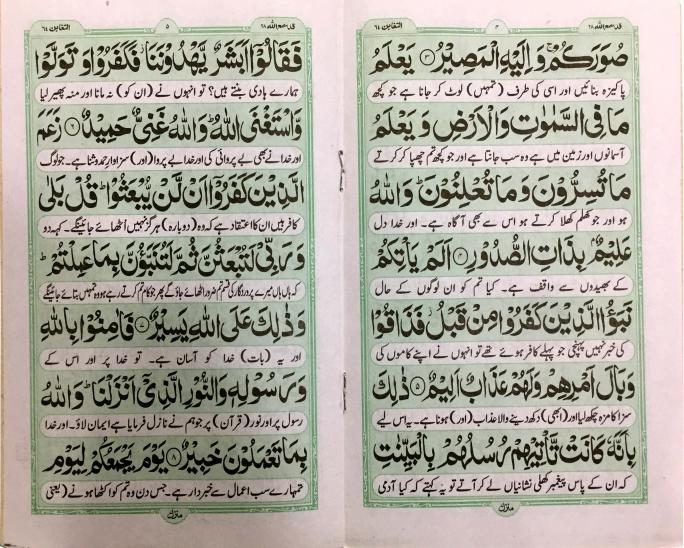 قد سمع الله ٢٨
٤
التغابن ٦٤
صُوَرَكُمْ ۚ وَإِلَيْهِ الْمَصِيْرُ ۝٣ يَعْلَمُ
پاکیزہ بنائیں اور اسی کی طرف (تمہیں) لوٹ کر جانا ہے جو کچھ
مَا فِي السَّمٰوٰتِ وَالْاَرْضِ وَيَعْلَمُ
آسمانوں اور زمین میں ہے وہ سب جانتا ہے اور جو کچھ تم چھپا کر کرتے
مَا تُسِرُّوْنَ وَمَا تُعْلِنُوْنَ ؕ وَاللهُ
ہو اور جو کھلم کھلا کرتے ہو اس سے بھی آگاہ ہے۔ اور خدا دل
عَلِيْمٌۢ بِذَاتِ الصُّدُوْرِ ۝٤ اَلَمْ يَاْتِكُمْ
کے بھیدوں سے واقف ہے۔ کیا تم کو ان لوگوں کے حال
نَبَؤُا الَّذِيْنَ كَفَرُوْا مِنْ قَبْلُ ؗ فَذَاقُوْا
کی خبر نہیں پہنچی جو پہلے کافر ہوئے تھے تو انہوں نے اپنے کاموں کی
وَبَالَ اَمْرِهِمْ وَلَهُمْ عَذَابٌ اَلِيْمٌ ۝٥ ذٰلِكَ
سزا کا مزہ چکھ لیا اور (ابھی) دکھ دینے والا عذاب (اور) ہونا ہے۔ یہ اس لیے
بِاَنَّهٗ كَانَتْ تَّاْتِيْهِمْ رُسُلُهُمْ بِالْبَيِّنٰتِ
کہ ان کے پاس پیغمبر کھلی نشانیاں لے کر آتے تو یہ کہتے کہ کیا آدمی
منزل
قد سمع الله ٢٨
٥
التغابن ٦٤
فَقَالُوْٓا اَبَشَرٌ يَّهْدُوْنَنَا ؗ فَكَفَرُوْا وَتَوَلَّوْا
ہمارے ہادی بنتے ہیں؟ تو انہوں نے (ان کو) نہ مانا اور منہ پھیر لیا
وَّاسْتَغْنَى اللهُ ؕ وَاللهُ غَنِيٌّ حَمِيْدٌ ۝٦ زَعَمَ
اور خدا نے بھی بے پروائی کی اور خدا بے پروا (اور) سزاوار حمد و ثنا ہے۔ جو لوگ
الَّذِيْنَ كَفَرُوْٓا اَنْ لَّنْ يُّبْعَثُوْا ؕ قُلْ بَلٰى
کافر ہیں ان کا اعتقاد ہے کہ وہ (دوبارہ) ہرگز نہیں اُٹھائے جائینگے۔ کہہ دو
وَرَبِّيْ لَتُبْعَثُنَّ ثُمَّ لَتُنَبَّؤُنَّ بِمَا عَمِلْتُمْ ؕ
کہ ہاں ہاں میرے پروردگار کی قسم تم ضرور اٹھائے جاؤ گے پھر جو کام تم کرتے رہے ہو وہ تمہیں بتائے جائینگے
وَذٰلِكَ عَلَى اللهِ يَسِيْرٌ ۝٧ فَاٰمِنُوْا بِاللهِ
اور یہ (بات) خدا کو آسان ہے۔ تو خدا پر اور اس کے
وَرَسُوْلِهٖ وَالنُّوْرِ الَّذِيْٓ اَنْزَلْنَا ؕ وَاللهُ
رسول پر اور نور (قرآن) پر جو ہم نے نازل فرمایا ہے ایمان لاؤ۔ اور خدا
بِمَا تَعْمَلُوْنَ خَبِيْرٌ ۝٨ يَوْمَ يَجْمَعُكُمْ لِيَوْمِ
تمہارے سب اعمال سے خبردار ہے۔ جس دن وہ تم کو اکٹھا ہونے (یعنی
منزل